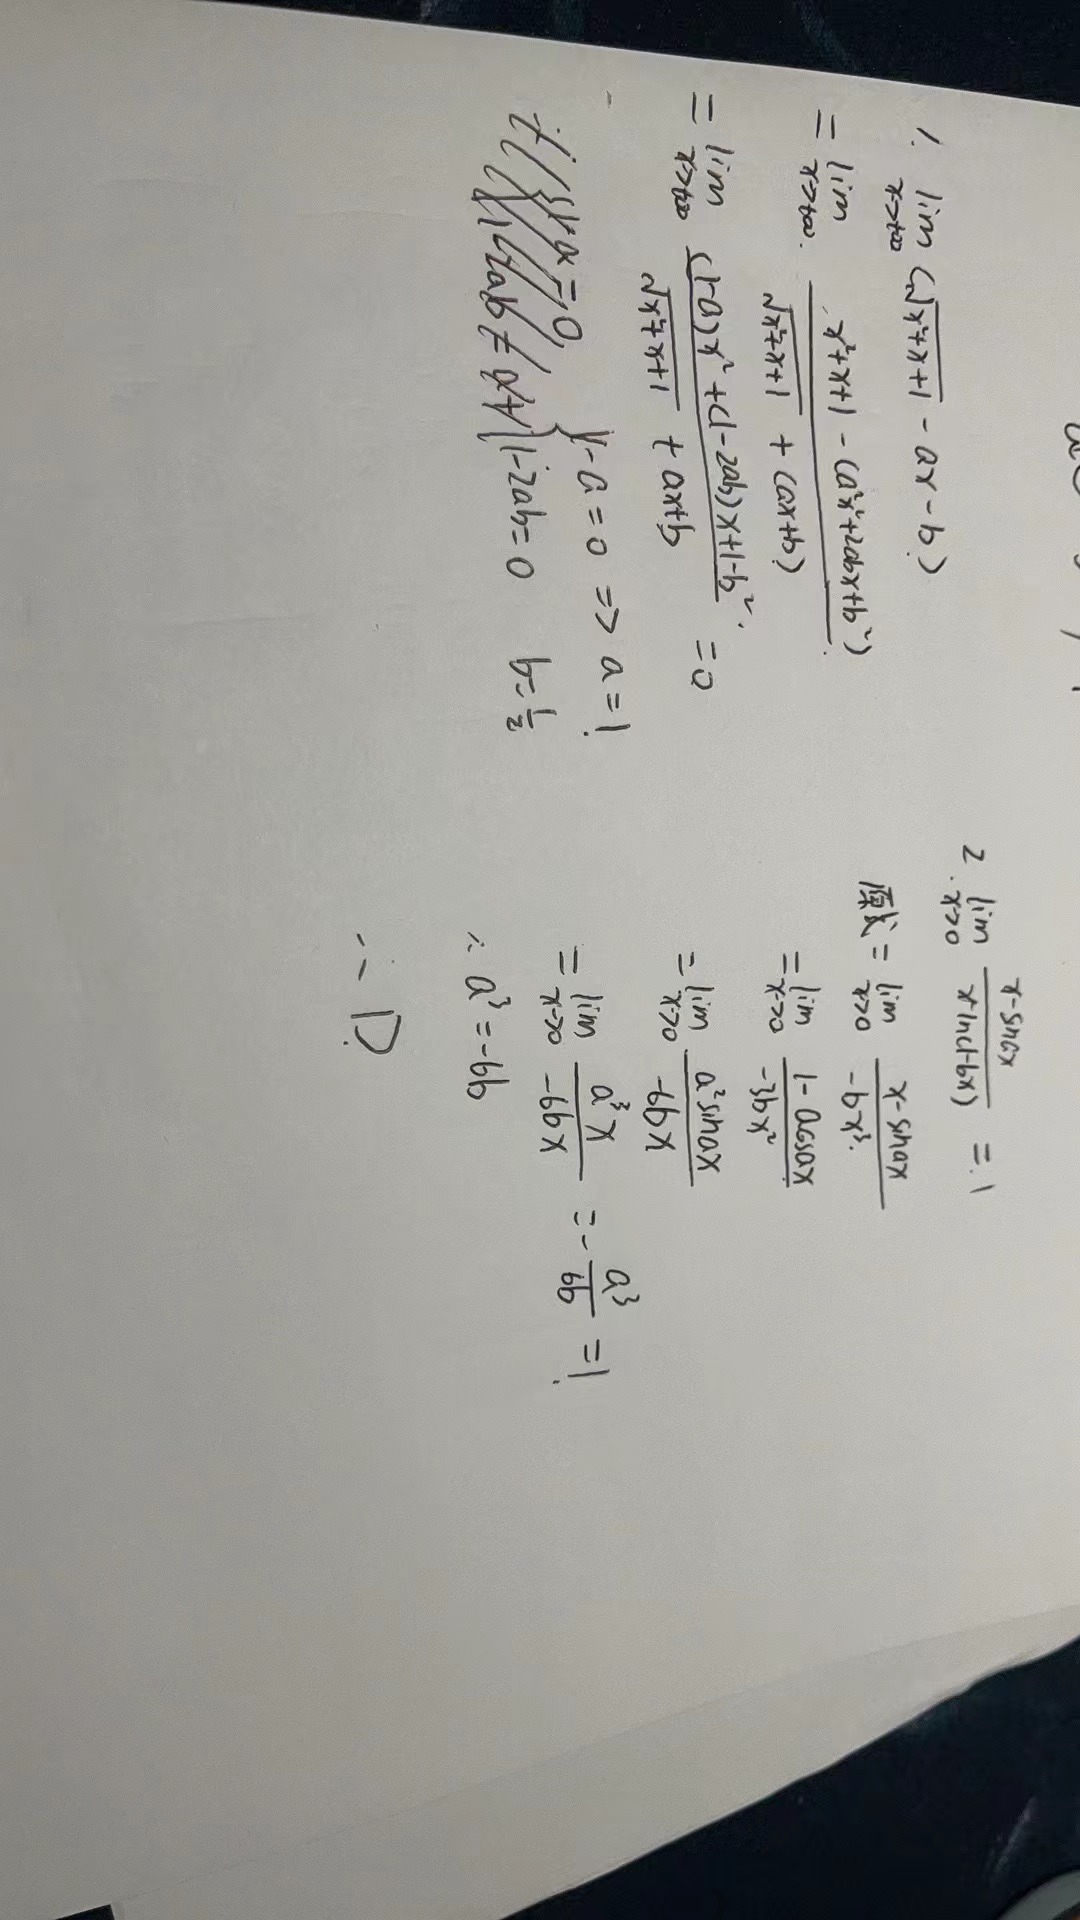 1. lim x→+∞ (√(x²+x+1) - ax - b)
= lim x→+∞ (x²+x+1 - (a²x²+2abx+b²)) / (√(x²+x+1) + (ax+b))
= lim x→+∞ ((1-a)x² + (1-2ab)x+1-b²) / (√(x²+x+1) + ax+b) = 0
{ 1-a = 0 => a = 1
1-2ab = 0 b = 1/2
2. lim x→0 (x-sinax) / (x²ln(1-bx)) = 1
原式 = lim x→0 (x-sinax) / (-bx³)
= lim x→0 (1-acosax) / (-3bx²)
= lim x→0 (a²sinax) / (-6bx)
= lim x→0 (a³x) / (-6bx) = - a³/6b = 1
∴ a³ = -6b
∴ D